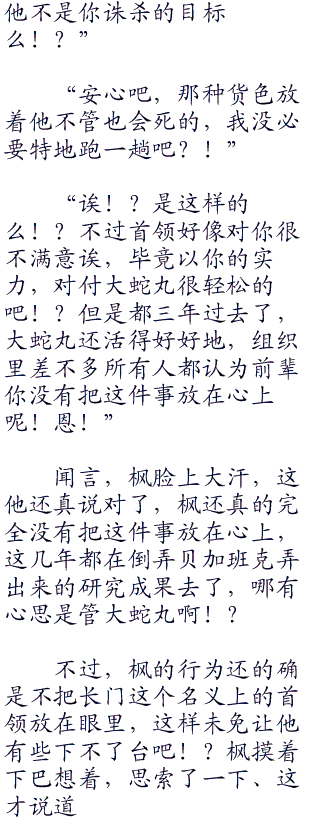 他不是你诛杀的目标
么！？”
“安心吧，那种货色放
着他不管也会死的，我没必
要特地跑一趟吧？！”
“诶！？是这样的
么！？不过首领好像对你很
不满意诶，毕竟以你的实
力，对付大蛇丸很轻松的
吧！？但是都三年过去了，
大蛇丸还活得好好地，组织
里差不多所有人都认为前辈
你没有把这件事放在心上
呢！恩！”
闻言，枫脸上大汗，这
他还真说对了，枫还真的完
全没有把这件事放在心上，
这几年都在倒弄贝加班克弄
出来的研究成果去了，哪有
心思是管大蛇丸啊！？
不过，枫的行为还的确
是不把长门这个名义上的首
领放在眼里，这样未免让他
有些下不了台吧！？枫摸着
下巴想着，思索了一下、这
才说道